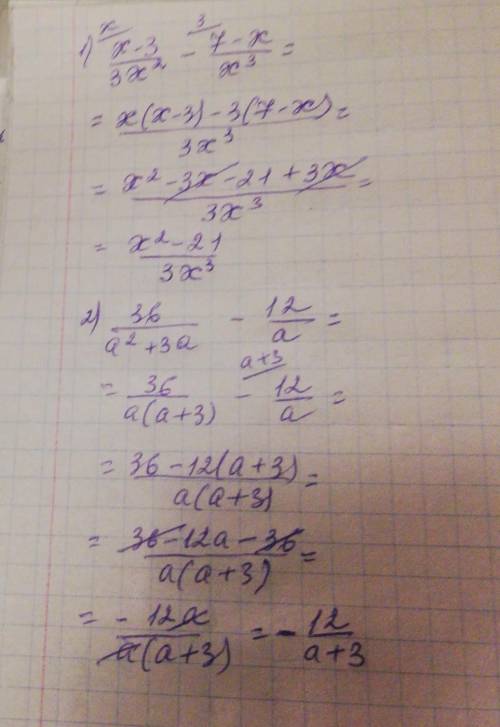 1) x/ (x-3)/(3x²) - 3/ (7-x)/(x³) =
= (x(x-3)-3(7-x))/(3x³) =
= (x²-3x-21+3x)/(3x³) =
= (x²-21)/(3x³)
2) 36/(a²+3a) - 12/a =
= 36/(a(a+3)) - a+3/ 12/a =
= (36-12(a+3))/(a(a+3)) =
= (36-12a-36)/(a(a+3)) =
= (-12a)/(a(a+3)) = - 12/(a+3)